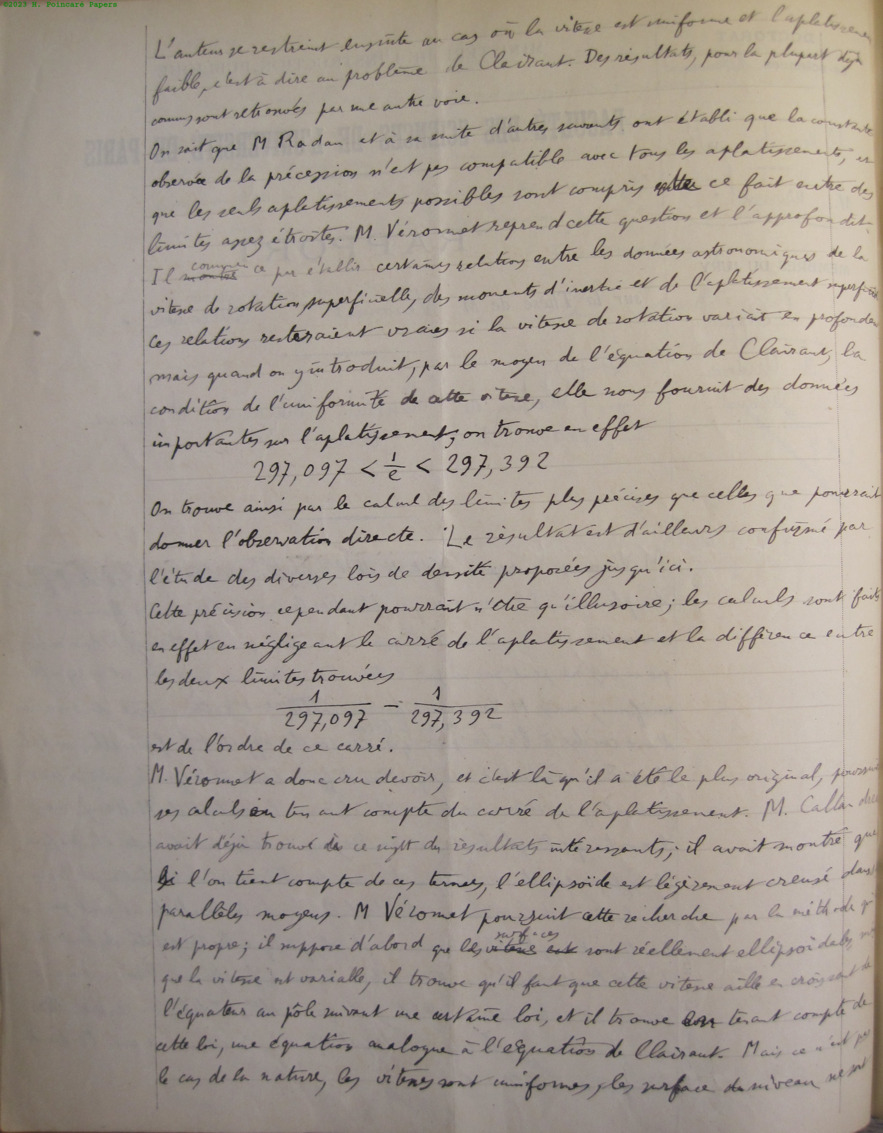 ©2023 H. Poincaré Papers
L'auteur se restreint ensuite au cas où la vitesse est uniforme et l'aplatissement
faible, c'est à dire au problème de Clairaut. Des résultats, pour la plupart déjà
connus sont retrouvés par une autre voie.
On sait que M Radau et à sa suite d'autres savants ont établi que la constante
observée de la précession n'est pas compatible avec tous les aplatissements, et
que les seuls aplatissements possibles sont compris ce fait entre des
limites assez étroites. M. Véronnet reprend cette question et l'approfondit.
Il commence par établir certaines relations entre les données astronomiques de la
vitesse de rotation superficielle, des moments d'inertie et de l'aplatissement superficiel
ces relations resteraient vraies si la vitesse de rotation variait en profondeur
mais quand on y introduit, par le moyen de l'équation de Clairaut, la
condition de l'uniformité de cette vitesse, elle nous fournit des données
importantes sur l'aplatissement; on trouve en effet
297,097 < 1/e < 297,392
On trouve ainsi par le calcul des limites plus précises que celles que pourrait
donner l'observation directe. Le résultat est d'ailleurs confirmé par
l'étude des diverses lois de densité proposées jusqu'ici.
Cette précision cependant pourrait n'être qu'illusoire; les calculs sont faits
en effet en négligeant le carré de l'aplatissement et la différence entre
les deux limites trouvées
1/297,097 – 1/297,392
est de l'ordre de ce carré.
M. Véronnet a donc cru devoir, et c'est là qu'il a été le plus original, poursuivre
ses calculs en tenant compte du carré de l'aplatissement. M. Callandreau
avait déjà trouvé à ce sujet des résultats intéressants; il avait montré que
si l'on tient compte de ces termes, l'ellipsoïde est légèrement creusé dans
parallèles moyens. M Véronnet poursuit cette recherche par la méthode qui
est propre; il suppose d'abord que les surfaces sont réellement ellipsoïdales
que la vitesse est variable, il trouve qu'il faut que cette vitesse aille en croissant de
l'équateur au pôle suivant une certaine loi, et il trouve en tenant compte de
cette loi, une équation analogue à l'équation de Clairaut. Mais ce n'est pas
le cas de la nature, les vitesses sont uniformes, les surface de niveau ne sont